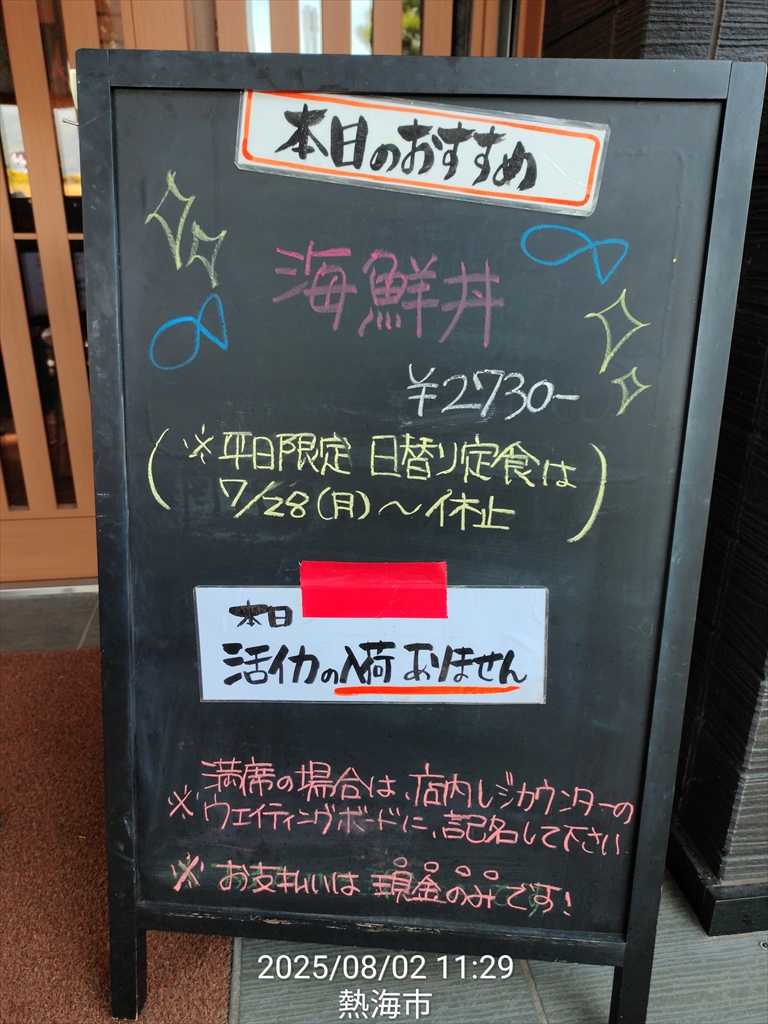 本日のおすすめ
海鮮丼
¥2730-
(※平日限定 日替り定食は
7/28(月)〜休止)
本日
活イカの入荷ありません
※満席の場合は、店内レジカウンターの
ウェイティングボードに、記名して下さい
※お支払いは現金のみです!
2025/08/02 11:29
熱海市